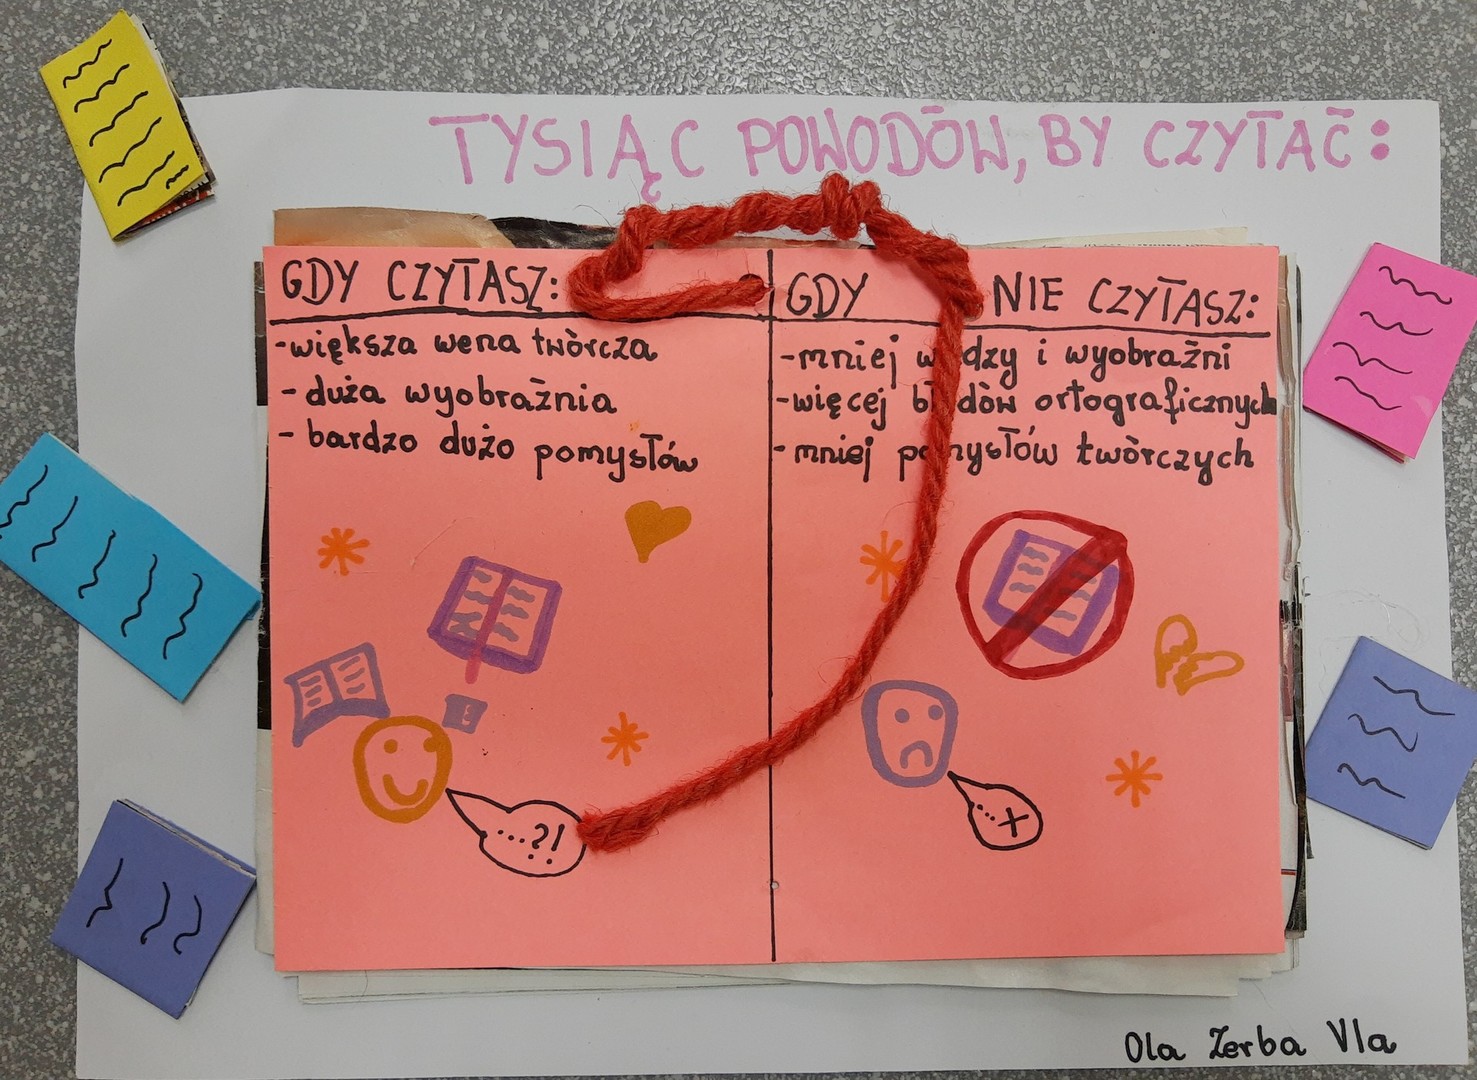 TYSIĄC POWODÓW, BY CZYTAĆ:
GDY CZYTASZ:
-większa wena twórcza
- duża wyobraźnia
- bardzo dużo pomysłów
...?!
GDY NIE CZYTASZ:
-mniej wiedzy i wyobraźni
-więcej błędów ortograficznych
-mniej pomysłów twórczych
Ola Zerba VIa